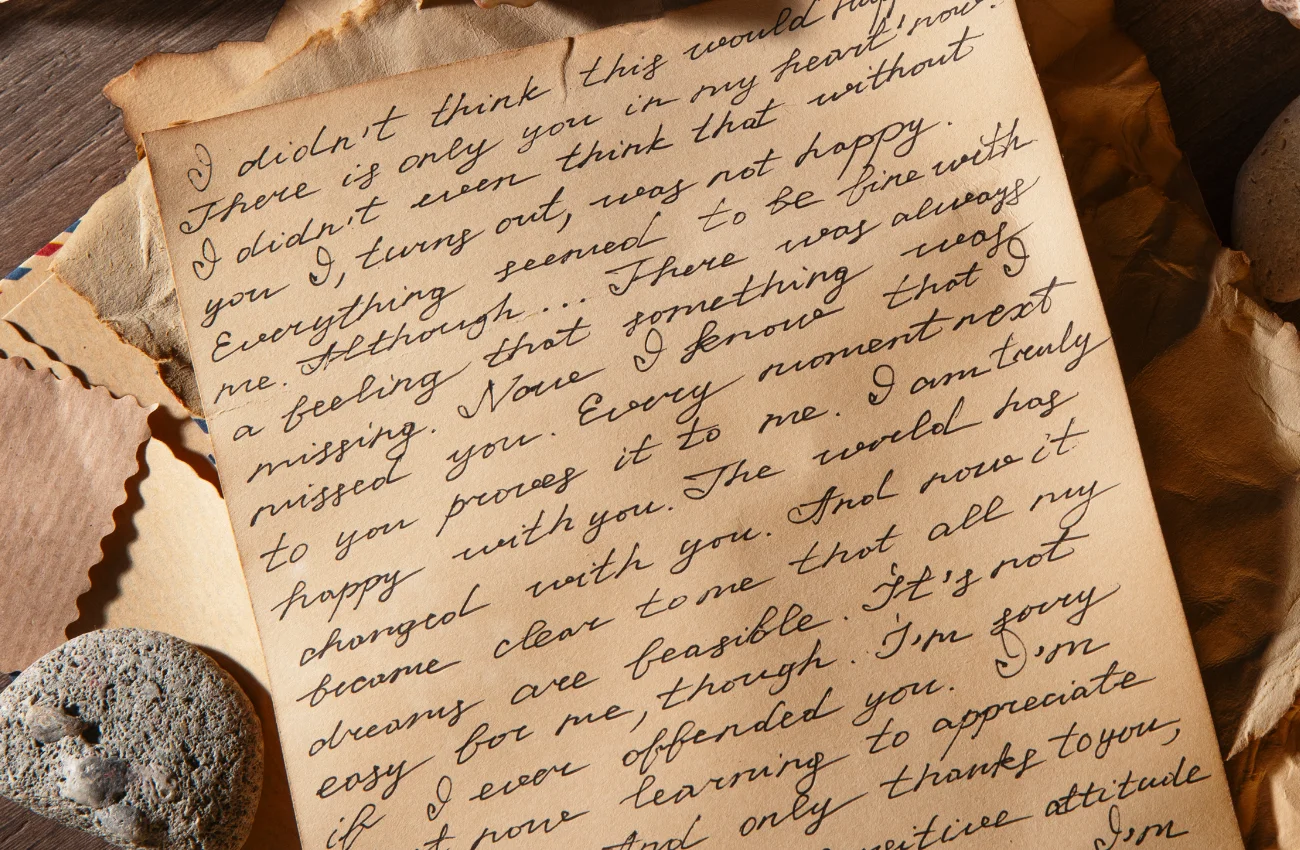 I didn't think this would
There is only you in my heart now.
I didn't even think that without
you I, turns out, was not happy.
Everything seemed to be fine with
me. Although... There was always
a feeling that something was
missing. Now I know that I
missed you. Every moment next
to you proves it to me. I am truly
happy with you. The world has
changed with you. And now it
became clear to me that all my
dreams are feasible. It's not
easy for me, though. I'm sorry
if I ever offended you. I'm
now learning to appreciate
And only thanks to you,
attitude
I'm